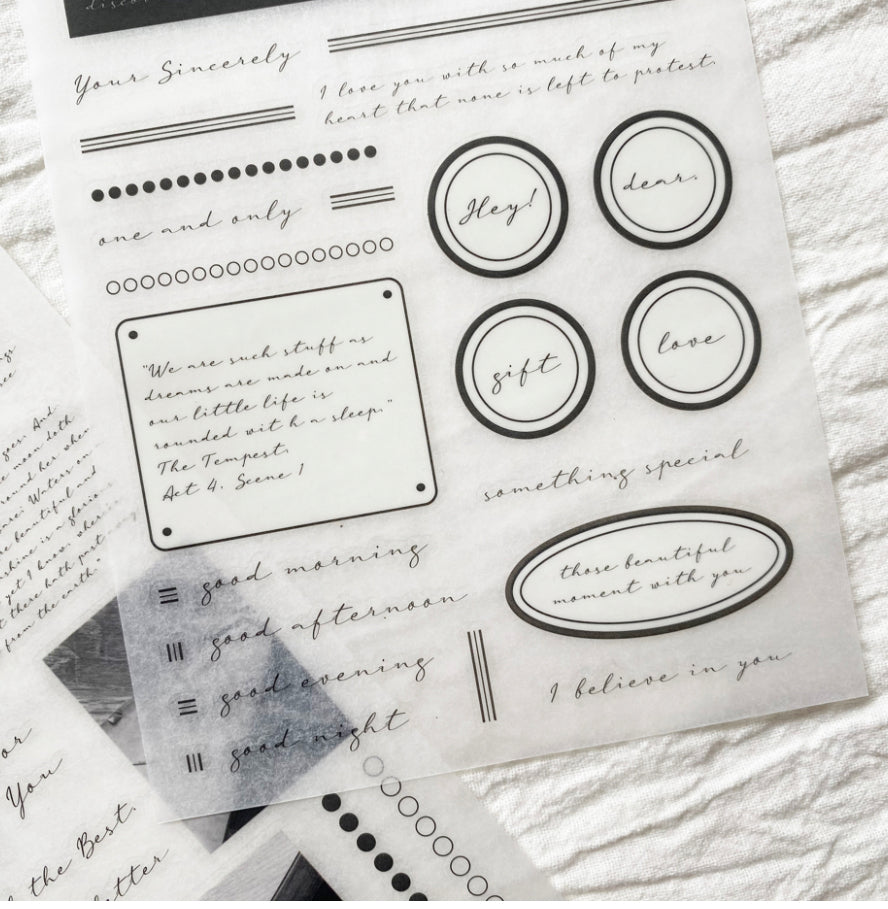 Your Sincerely
I love you with so much of my
heart that none is left to protest.
one and only
Hey!
dear.
gift
love
"We are such stuff as
dreams are made on and
our little life is
rounded wit h a sleep."
The Tempest.
Act 4. Scene 1
something special
those beautiful
moment with you
good morning
good afternoon
good evening
good night
I believe in you
goes: And
moon doth
round her when
Waters on
beautiful and
is a
yet I know, where
there hath past
from the earth."
or
You
the Best.